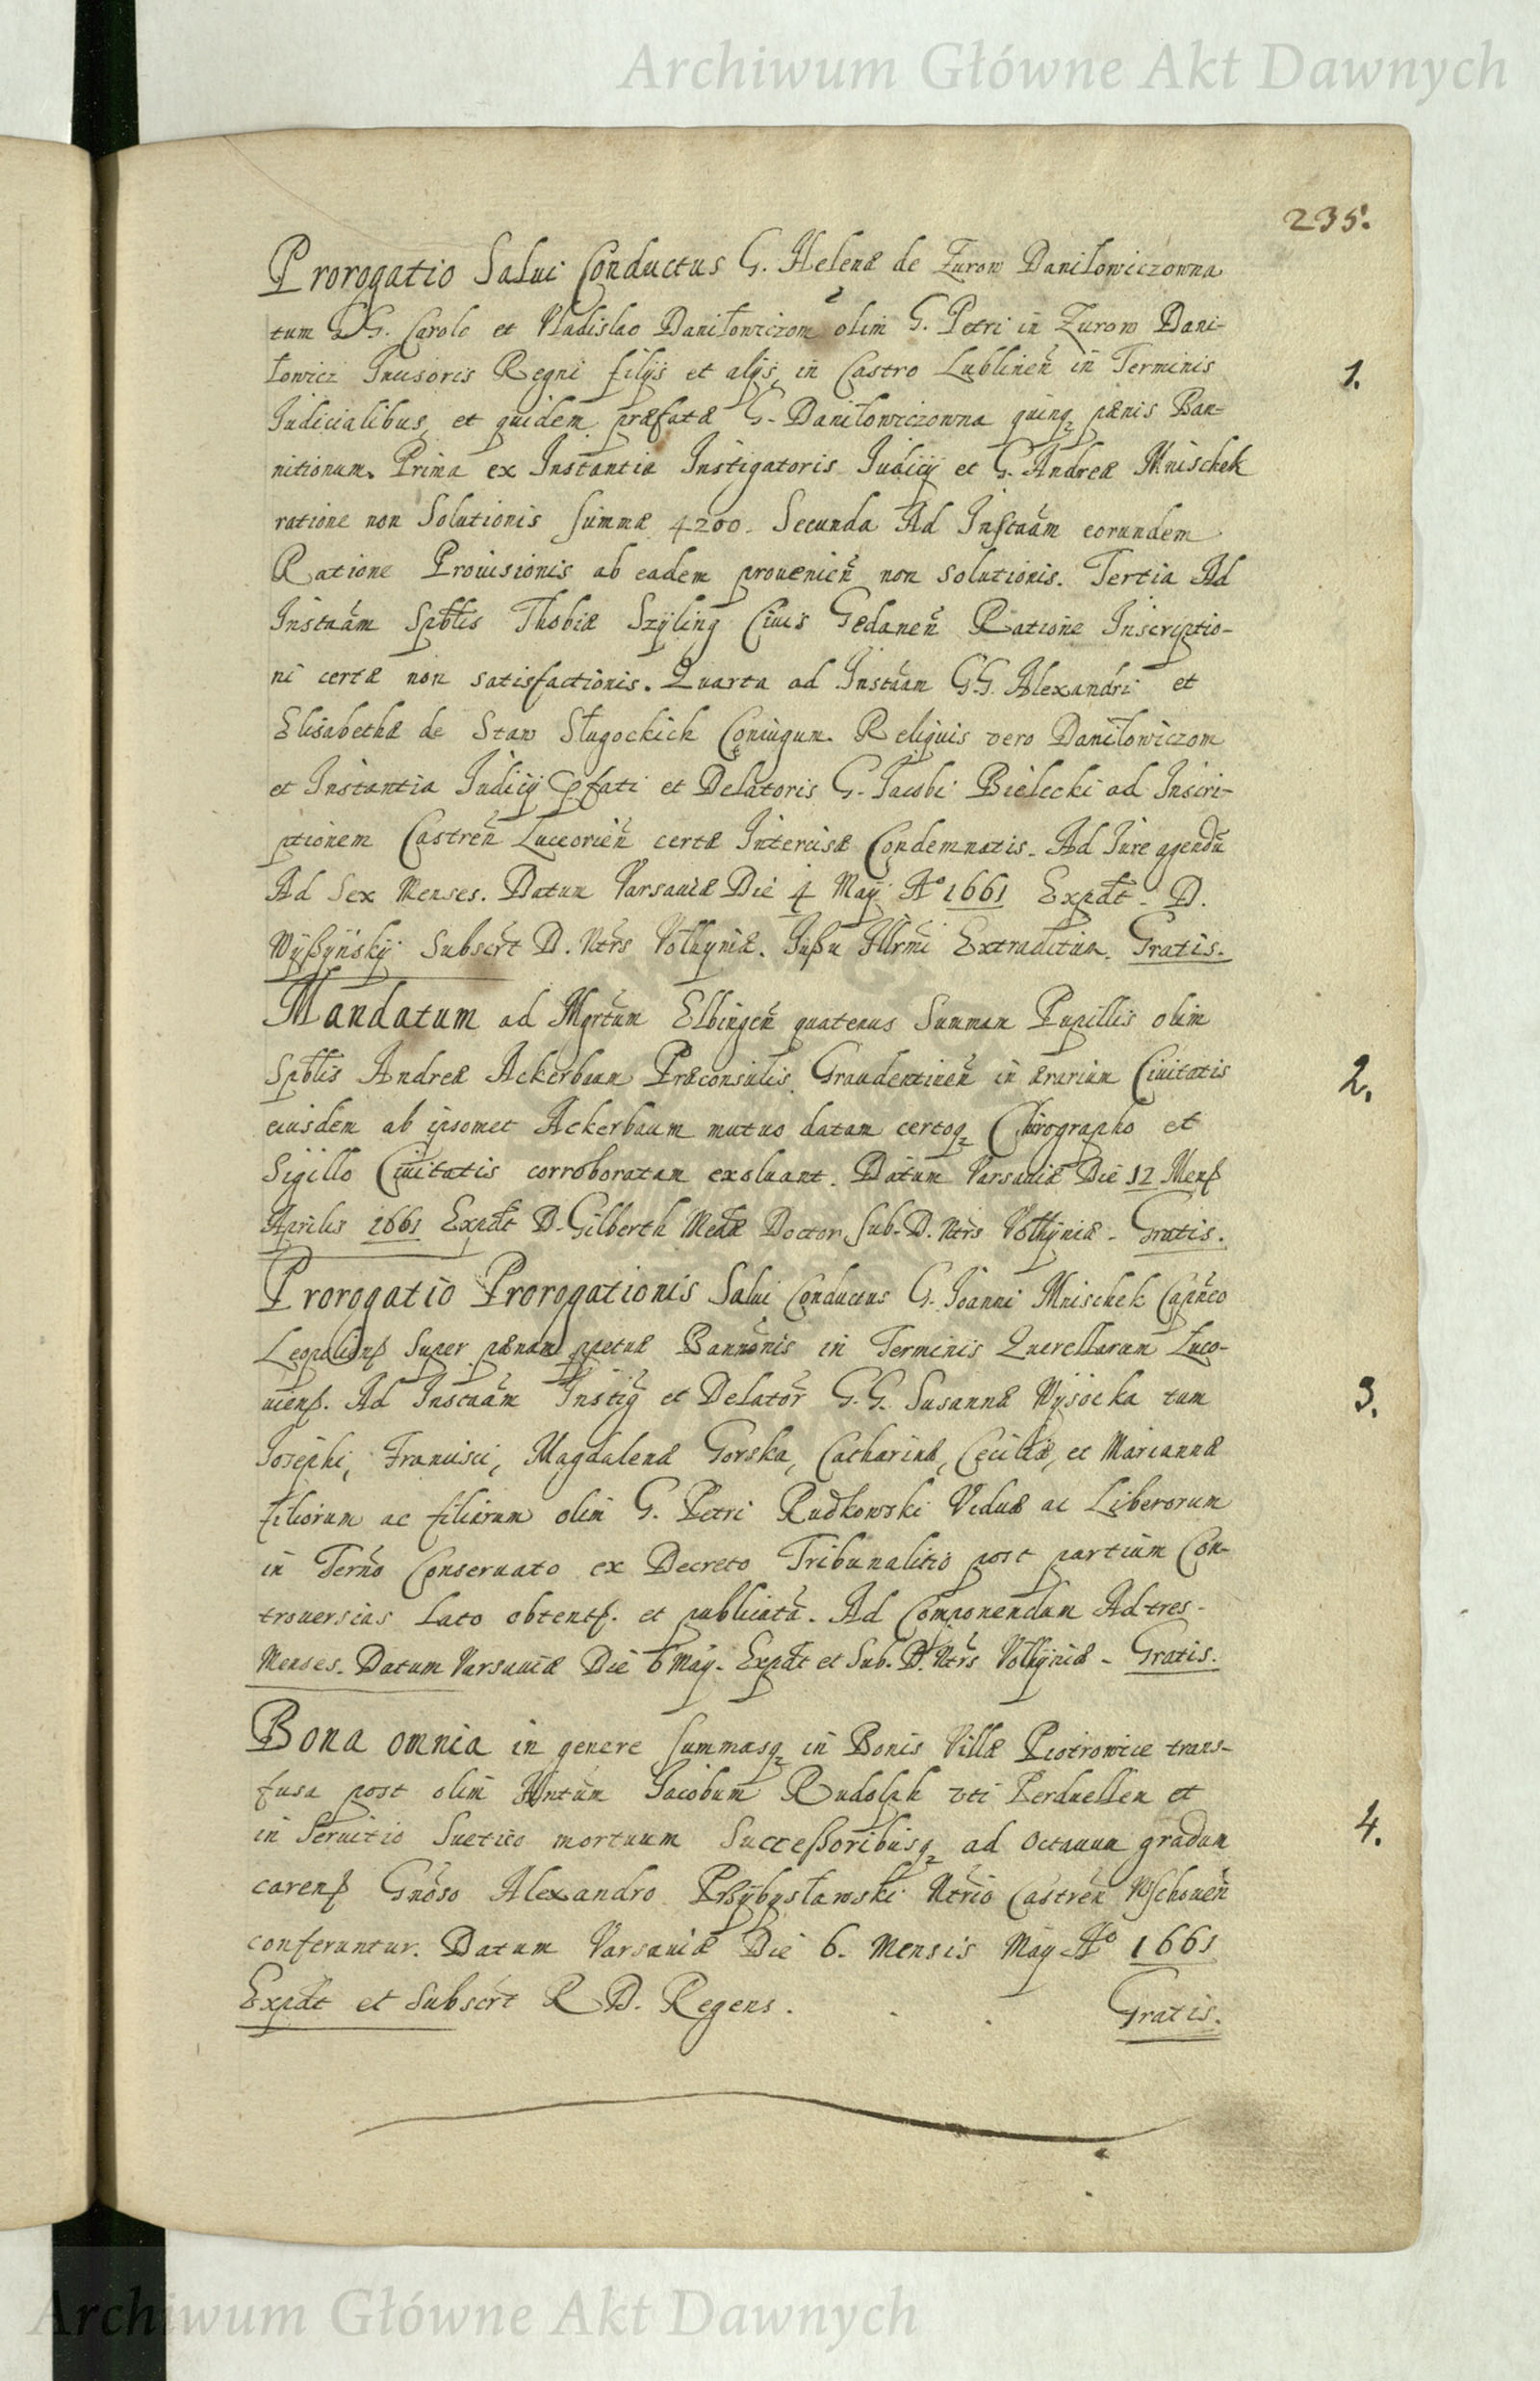 Archiwum Główne Akt Dawnych
235.
Prorogatio Salui Conductus G. Helenæ de Zurow Daniłowiczowna
tum GG. Carolo et Vladislao Daniłowiczom olim G. Petri in Zurow Dani-
łowicz Incisoris Regni filijs et alijs, in Castro Lublineñ in Terminis
1.
Judicialibus, et quidem præfatæ G. Daniłowiczowna quinq pænis Ban-
nitionum. Prima ex Instantia Instigatoris Judicij et G. Andreæ Mnischek
ratione non Solutionis summæ 4200. Secunda Ad Instãam eorundem
Ratione Prouisionis ab eadem prouenieñ non solutionis. Tertia Ad
Instãam Spblis Thobiæ Szÿling Ciuis Gedaneñ Ratione Inscriptio-
ni certæ non satisfactionis. Quarta ad Instãam GG. Alexandri et
Elisabethæ de Staw Sługockich Coniugum. Reliquis vero Daniłowiczom
et Instantia Judicij pfati et Delatoris G. Jacobi Bielecki ad Inscri-
ptionem Castreñ Luceorieñ certæ Intercisæ Condemnatis. Ad Iure agendũ
Ad Sex Menses. Datum Varsauiæ Die 4 Maij Aº 1661 Expdt. D.
Wÿßÿnskÿ Subscrt D. Ntrs Volhyniæ. Jußu Illrmi Extraditum. Gratis.
Mandatum ad Mgrtum Elbingeñ quatenus Summam Pupillis olim
Spblis Andreæ Ackerbaum Præconsulis Graudentineñ in ærarium Ciuitatis
2.
eiusdem ab ipsomet Ackerbaum mutuo datam certoq Chirographo et
Sigillo Ciuitatis corroboratam exoluant. Datum Varsauiæ Die 12 Mens
Aprilis 1661 Expdt D. Gilberth Medæ Doctor, Sub. D. Ntrs Volhÿniæ. Gratis.
Prorogatio Prorogationis Salui Conductus G. Joanni Mnischek Capneo
Leopoliens Super pænam ppetuæ Bannonis in Terminis Querellarum Luco-
uiens. Ad Instãam Instig et Delator G.G. Susannæ Wÿsocka tum
3.
Josephi, Francisci, Magdalenæ Gorska, Catharinæ, Ceciliæ, et Mariannæ
filiorum ac filiarum olim G. Petri Rudkowski Viduæ ac Liberorum
in Terno Conseruato ex Decreto Tribunalitio post partium Con-
trouersias Lato obtent. et publicatã. Ad Componendum Ad tres
Menses. Datum Varsauiæ Die 6 Maij. Expdt et Sub. D. Ntrs Volhÿniæ. Gratis.
Bona omnia in genere summasq in Bonis Villæ Piotrowice trans-
fusa post olim Jacobum Rudolph vti Perduellem et
in Seruitio Suetico mortuum Successoribusq ad octauum gradum
4.
carens Gnoso Alexandro Przÿbysławski Ntrio Castreñ Wschoueñ
conferuntur. Datum Varsauiæ Die 6. Mensis Maij Aº 1661
Expdt et Subscrt R D. Regens. Gratis.
Archiwum Główne Akt Dawnych